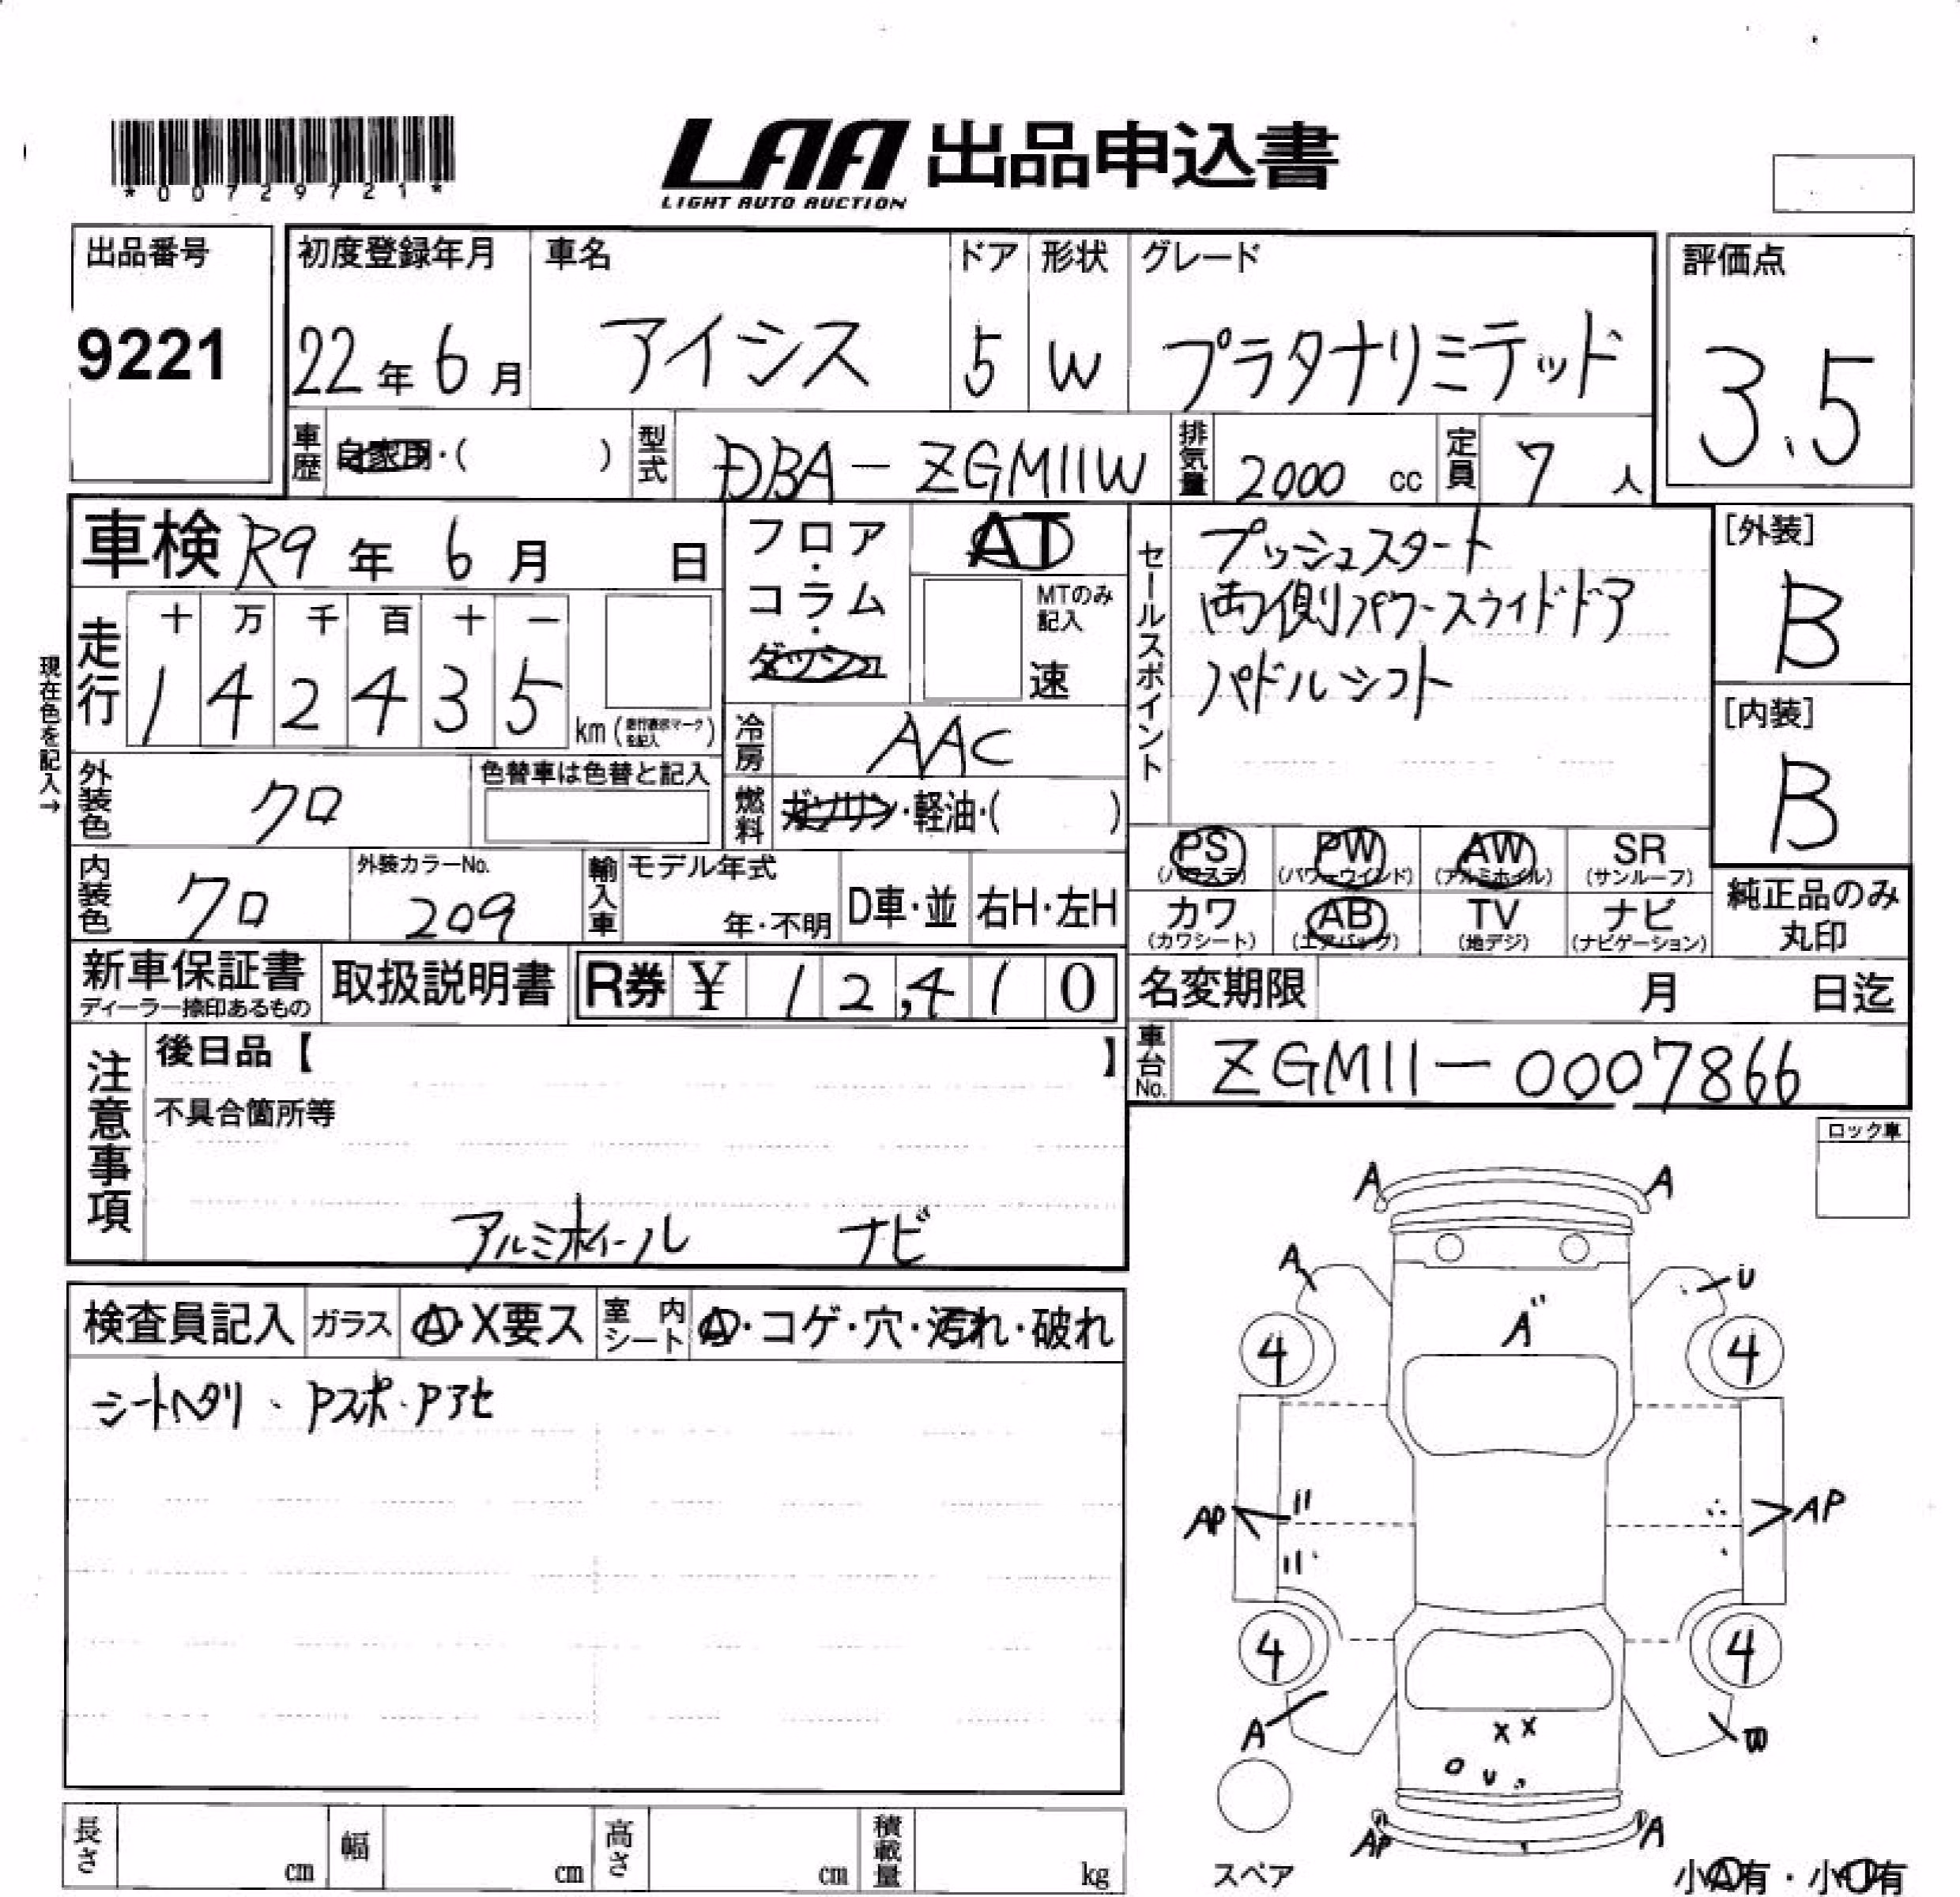 *00729721*
LAA 出品申込書
LIGHT AUTO AUCTION
出品番号
9221
初度登録年月
22年6月
車名
アイシス
ドア
5
形状
W
グレード
プラタナリミテッド
評価点
3.5
車歴
自家用・( )
型式
DBA-ZGM11W
排気量
2000 cc
定員
7人
車検 R9年 6月 日
走行
十 万 千 百 十 一
1 4 2 4 3 5
km(走行表示マークを記入)
現在色を記入→
フロア・コラム・ダッシュ
AT
MTのみ記入
速
冷房
AAC
燃料
ガソリン・軽油・( )
外装色
クロ
色替車は色替と記入
内装色
クロ
外装カラーNo.
209
輸入車
モデル年式
年・不明
D車・並
右H・左H
セールスポイント
プッシュスタート
両側パワースライドドア
パドルシフト
[外装]
B
[内装]
B
PS
(パワステ)
PW
(パワーウインド)
AW
(アルミホイル)
SR
(サンルーフ)
カワ
(カワシート)
AB
(エアバッグ)
TV
(地デジ)
ナビ
(ナビゲーション)
純正品のみ
丸印
新車保証書
ディーラー捺印あるもの
取扱説明書
R券 ¥ 12,410
名変期限 月 日迄
車台No.
ZGM11-0007866
注意事項
後日品【 】
不具合箇所等
アルミホイール ナビ
ロック車
検査員記入
ガラス
A・X要ス
室内シート
A・コゲ・穴・汚れ・破れ
シートヘタリ、Pスポ・Pアセ
A A
A U
A"
4 4
AP AP
4 4
X X
A W
U
AP A
スペア
小A有・小U有
長さ cm
幅 cm
高さ cm
積載量 kg